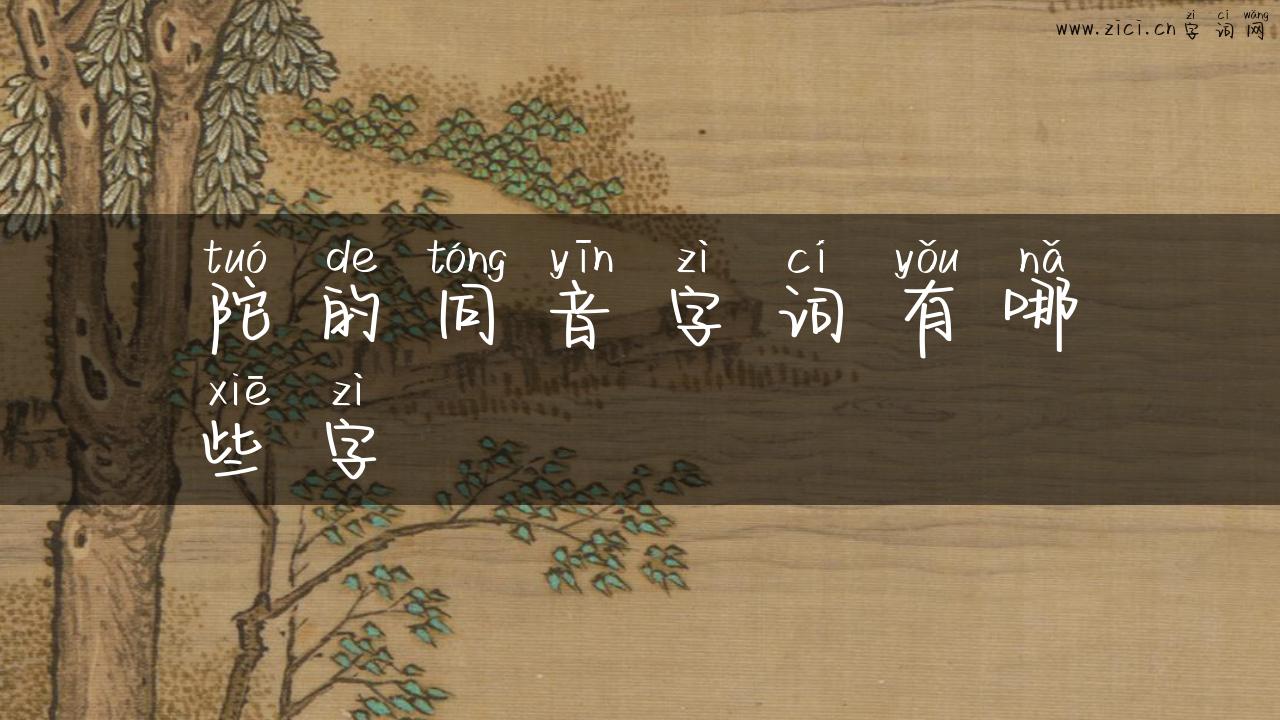 zì cí wǎng
www.zici.cn 字词网
tuó de tóng yīn zì cí yǒu nǎ
陀的同音字词有哪
xiē zì
些字